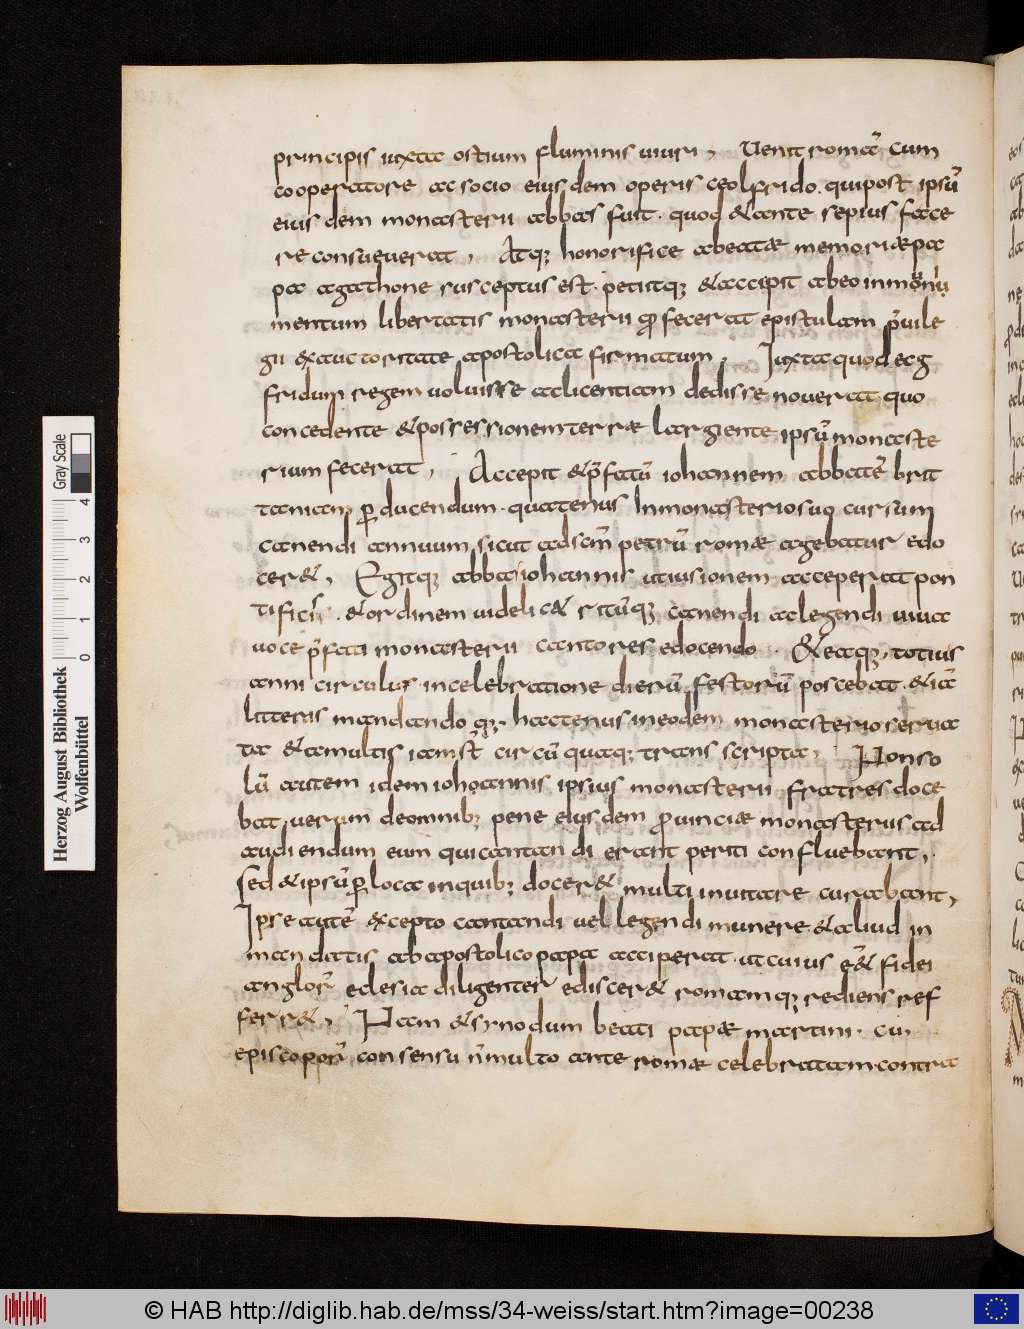 principis iuxta ostium fluminis uiuri, Uenit romā cum
cooperatore ac socio eiusdem operis ceolfrido. qui post ipsū
eiusdem monasterii abbas fuit. quod & ante sepius face
re consueuerat, Atq; honorifice a beatæ memoriæ pa
pa agathone susceptus est. petiitq; & accepit ab eo in monu
mentum libertatis monasterii quod fecerat epistulam p̄uile
gii ex auctoritate apostolica firmatum. Iuxta quod ecg
fridum regem uoluisse ac licentiam dedisse nouerat quo
concedente & possessionem terræ largiente ipsū monaste
rium fecerat, Accepit & p̄fatū iohannem abbatē brit
taniam perducendum. quatenus In monasterio suo cursum
canendi annuum sicut ad scm̄ petrū romæ agebatur edo
cer&, Egitq; abba iohannis ut iussionem acceperat pon
tificis. & ordinem uidelic& ritūq; canendi ac legendi uiua
uoce p̄fati monasterii cantores edocendo. & ea q; totius
anni circulus in celebratione dierū festorū poscebat. & iā
litteris mandando. q; hactenus in eodem monasterio serua
ta & a multis iam st̄ circū quaq; transcripta, Non so
lū autem idem iohannis ipsius monasterii fratres doce
bat. uerum de omnib; pene eiusdem prouinciæ monasteriis ad
audiendum eum qui cantandi erant periti confluebant,
sed & ipsū per loca in quib; docer& multi inuitare curabant,
Ipse autē excepto cantandi uel legendi munere & aliud in
mandatis ab apostolico papa acceperat. ut cuius eēt fidei
anglorū eclesia diligenter edisceret romamq; rediens ref
ferr&, Nam & synodum beati papæ martini. cu
episcoporū consensu n̄ multo ante romæ celebratam contra
Herzog August Bibliothek
Wolfenbüttel
0 1 2 3 4
Gray Scale
© HAB http://diglib.hab.de/mss/34-weiss/start.htm?image=00238